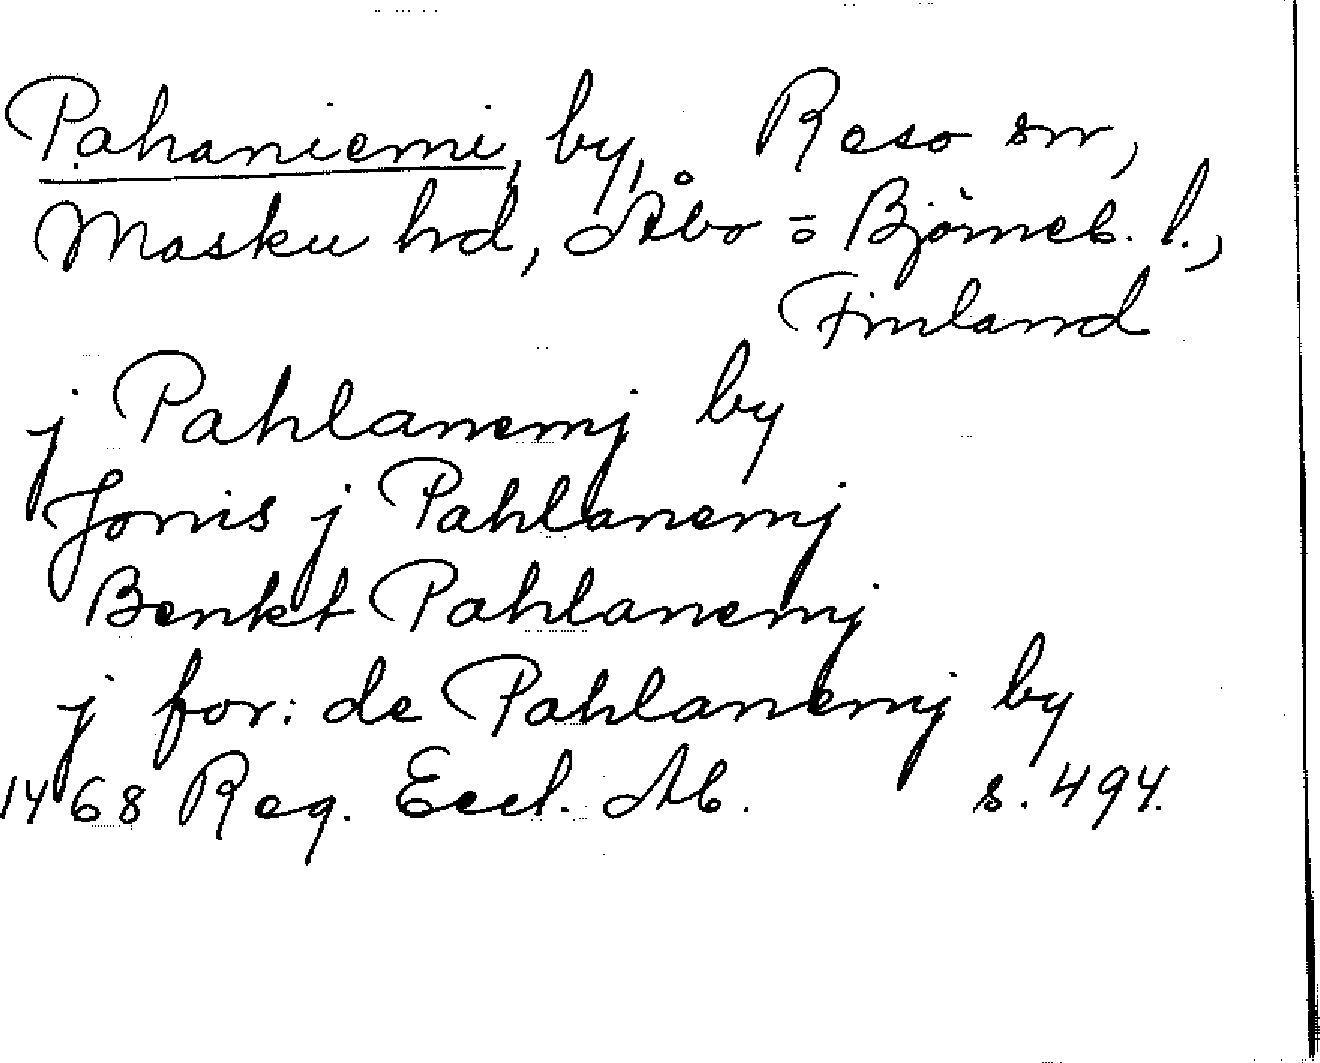 Pahaniemi, by, Reso sn,
Masku hd, Åbo = Björneb. l.,
Finland
j Pahlanemj by
Jonis j Pahlanemj
Benkt Pahlanemj
j for: de Pahlanemj by
1468 Reg. Eccl. Ab. s. 494.